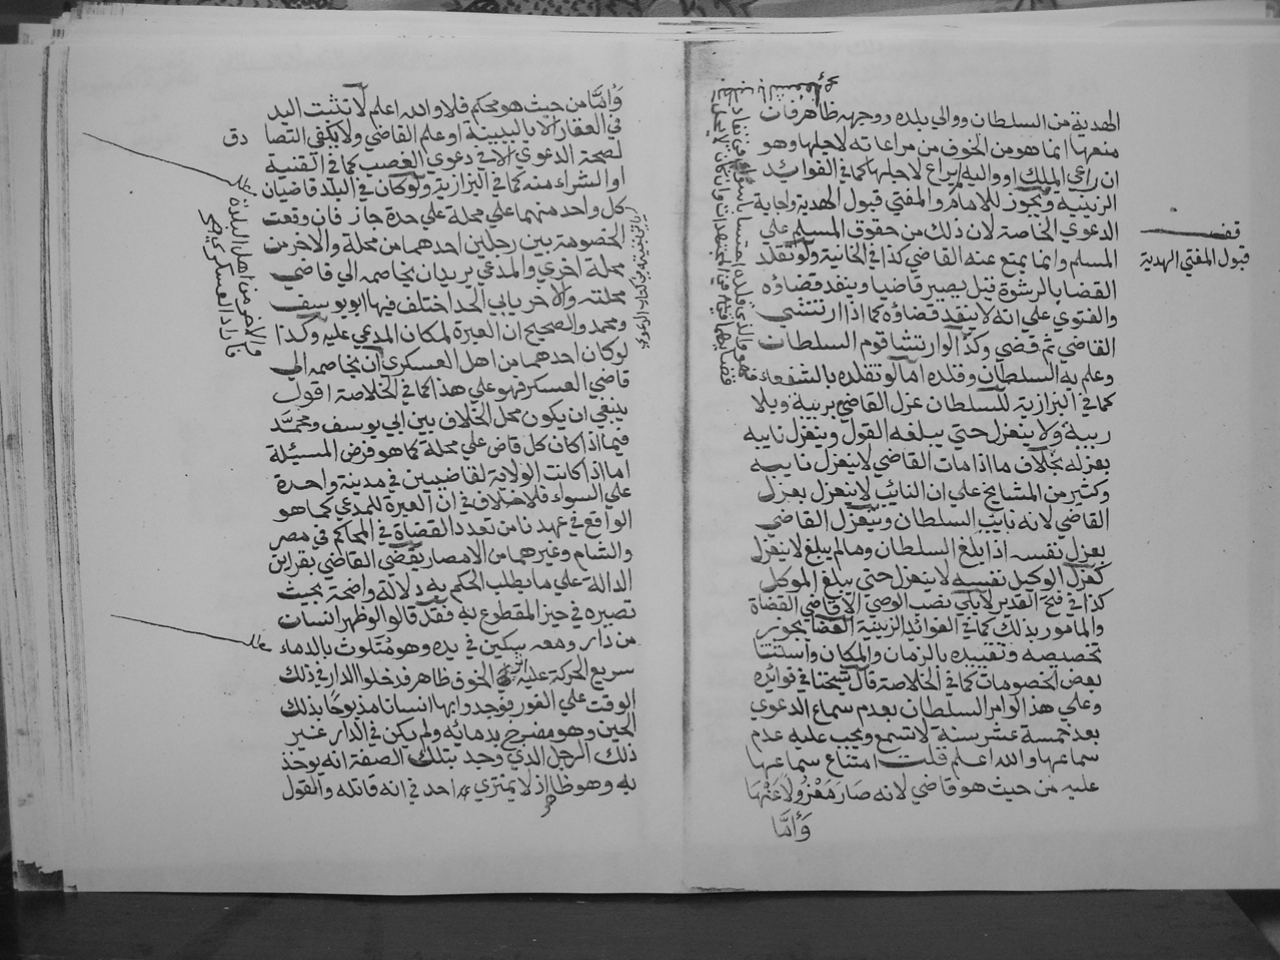 الهدية من السلطان ووالي بلده ووجهه ظاهر فان
منعها انما هو من الخوف من مراعاته لاجلها وهو
ان راعى الملك او واليه لم يراع لاجلها كما في الفوائد
الزينية ويجوز للامام والمفتي قبول الهدية واجابة
الدعوي الخاصة لان ذلك من حقوق المسلم علي
المسلم وانما يمتنع عنه القاضي كذا في الخانية ولو تقلد
القضا بالرشوة قيل يصير قاضيا وينفد قضاؤه
والفتوي علي انه لا ينفد قضاؤه كما اذا ارتشي
القاضي ثم قضي وكذا لو ارتشا قوم السلطان
وعلم به السلطان وقلده اما لو تقلده بالشفعاء فهو
كما في البزازية للسلطان عزل القاضي بريبة وبلا
ريبة ولا ينعزل حتي يبلغه القول وينعزل نايبه
بعزله بخلاف ما اذا مات القاضي لا ينعزل نايبه
وكثير من المشايخ علي ان النائب لا ينعزل بعزل
القاضي لانه نايب السلطان وينعزل القاضي
بعزل نفسه اذا بلغ السلطان وما لم يبلغ لا ينعزل
كعزل الوكيل نفسه لا ينعزل حتي يبلغ الموكل
كذا في فتح القدير لا يلي نصب الوصي الا قاضي القضاة
والمامور بذلك كما في الفوائد الزينية القضا يجوز
تخصيصه وتقييده بالزمان والمكان واستثنا
بعض الخصومات كما في الخلاصة قال شيخنا في فوائده
وعلي هذا لو امر السلطان بعدم سماع الدعوي
بعد خمسة عشر سنة لا تسمع ويجب عليه عدم
سماعها والله اعلم قلت امتناع سماعها
عليه من حيث هو قاضي لانه صار معزولا عنها
وأما
قبول المفتي الهدية
وأما من حيث هو محكم فلا والله اعلم لا تثبت اليد
في العقار الا بالبينة او علم القاضي ولا يكفي التصا
دق
لصحة الدعوي الا في دعوي الغصب كما في القنية
او الشراء منه كما في البزازية ولو كان في البلد قاضيان
كل واحد منهما علي محلة علي حدة جاز فان وقعت
الخصومة بين رجلين احدهما من محلة والاخر من
محلة اخري والمدعي يريد ان يخاصمه الي قاضي
محلته والاخر يابي الحد اختلف فيها ابو يوسف
ومحمد والصحيح ان العبرة لمكان المدعي عليه وكذا
لو كان احدهما من اهل العسكر
والاخر من اهل البلدة
فاراد العسكري
ان يخاصمه الي
قاضي العسكر فهو علي هذا كما في الخلاصة اقول
ينبغي ان يكون محل الخلاف بين ابي يوسف ومحمد
فيما اذا كان كل قاض علي محلة كما هو فرض المسئلة
اما اذا كانت الولاية لقاضيين في مدينة واحدة
علي السواء فلا اختلاف في ان العبرة للمدعي كما هو
الواقع في عهدنا من تعدد القضاة في المحاكم في مصر
والشام وغيرهما من الامصار يقضى القاضي بقراين
الدالة علي ما يطلب الحكم به دلالة واضحة بحيث
تصيره في حيز المقطوع به فقد قالوا لو ظهر انسان
من دار ومعه سكين في يده وهو متلوث بالدماء
سريع الحركة عليه اثر الخوف ظاهر فدخلوا الدار في ذلك
الوقت علي الفور فوجدوا بها انسانا مذبوحا بذلك
الحين وهو مضرج بدمائه ولم يكن في الدار غير
ذلك الرجل الذي وجد بتلك الصفة انه يوخذ
به وهو ظاهر اذ لا يمتري احد في انه قاتله والقول